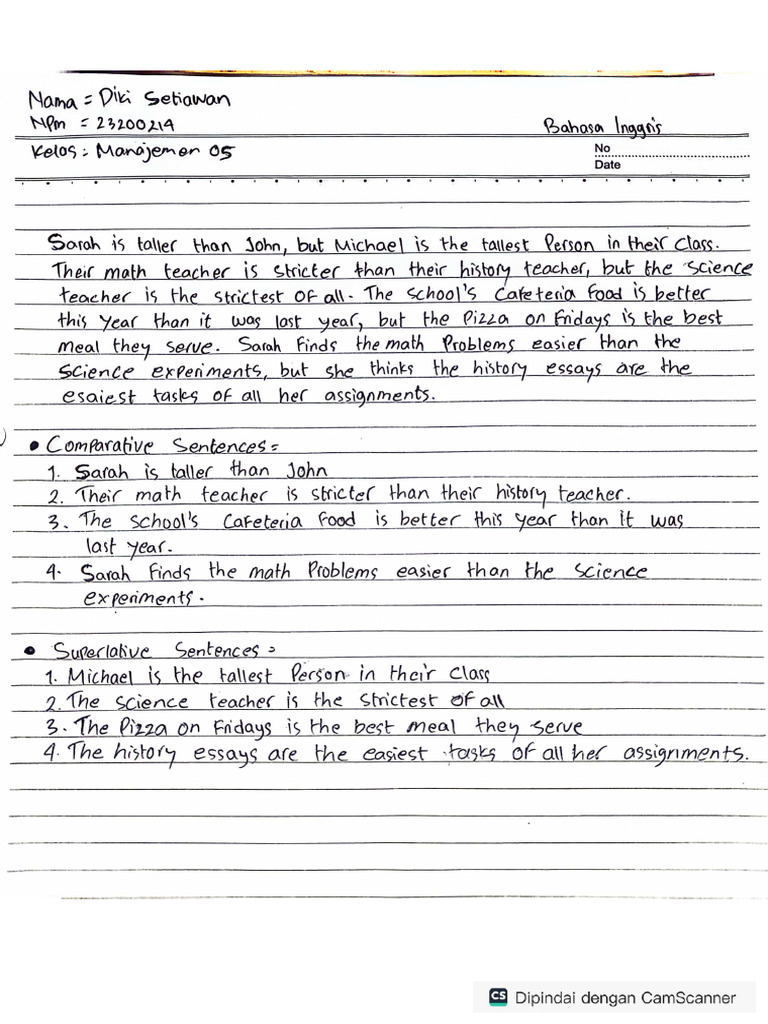 Nama = Diki Setiawan
NPM = 23200214
Bahasa Inggris
Kelas : Manajemen 05
No
Date
Sarah is taller than John, but Michael is the tallest Person in their class.
Their math teacher is stricter than their history teacher, but the science
teacher is the strictest of all. The school's cafeteria food is better
this year than it was last year, but the Pizza on Fridays is the best
meal they serve. Sarah finds the math Problems easier than the
science experiments, but she thinks the history essays are the
esaiest tasks of all her assignments.
• Comparative Sentences =
1. Sarah is taller than John
2. Their math teacher is stricter than their history teacher.
3. The school's cafeteria food is better this year than it was
last year.
4. Sarah finds the math Problems easier than the science
experiments.
• Superlative Sentences =
1. Michael is the tallest Person in their class
2. The science teacher is the strictest of all
3. The Pizza on Fridays is the best meal they serve
4. The history essays are the easiest tasks of all her assignments.
CS Dipindai dengan CamScanner